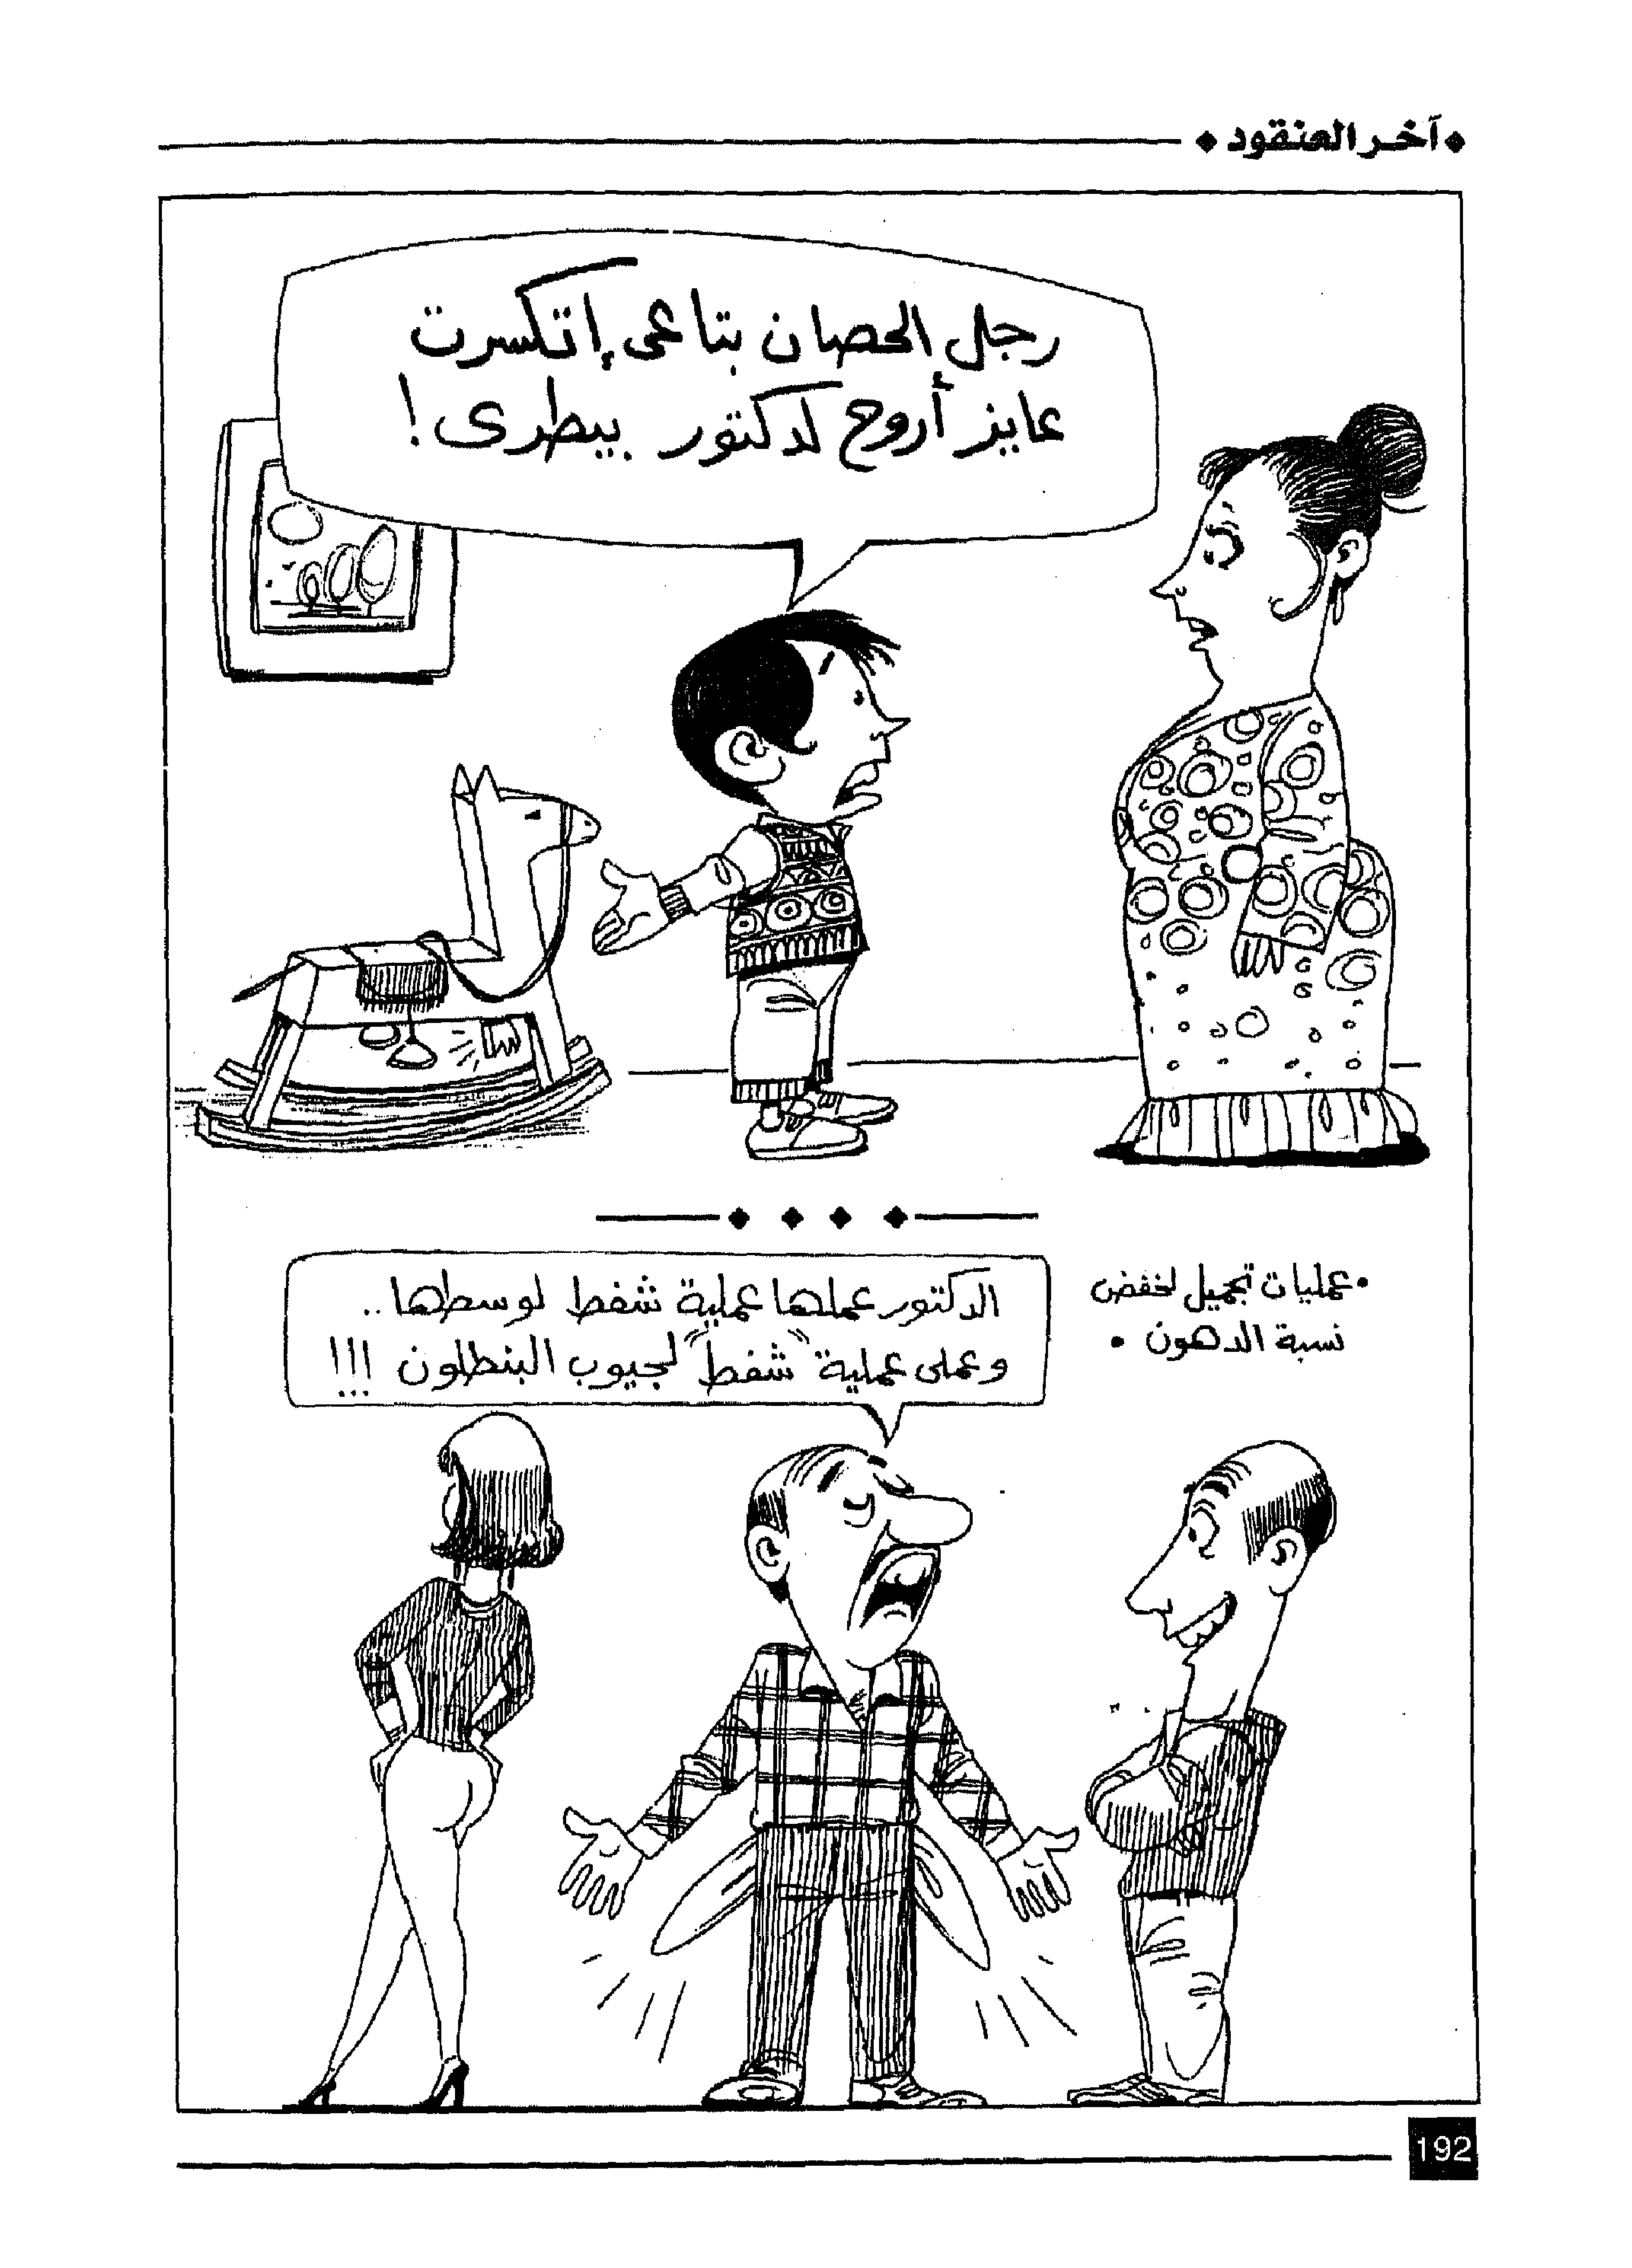 آخر العنقود
رجل الحصان بتاعى إتكسرت
عايز أروح لدكتور بيطرى !
• عمليات تجميل لخفض
نسبة الدهون •
الدكتور عملها عملية شفط لوسطها ..
وعملى عملية "شفط" لجيوب البنطلون !!!
192